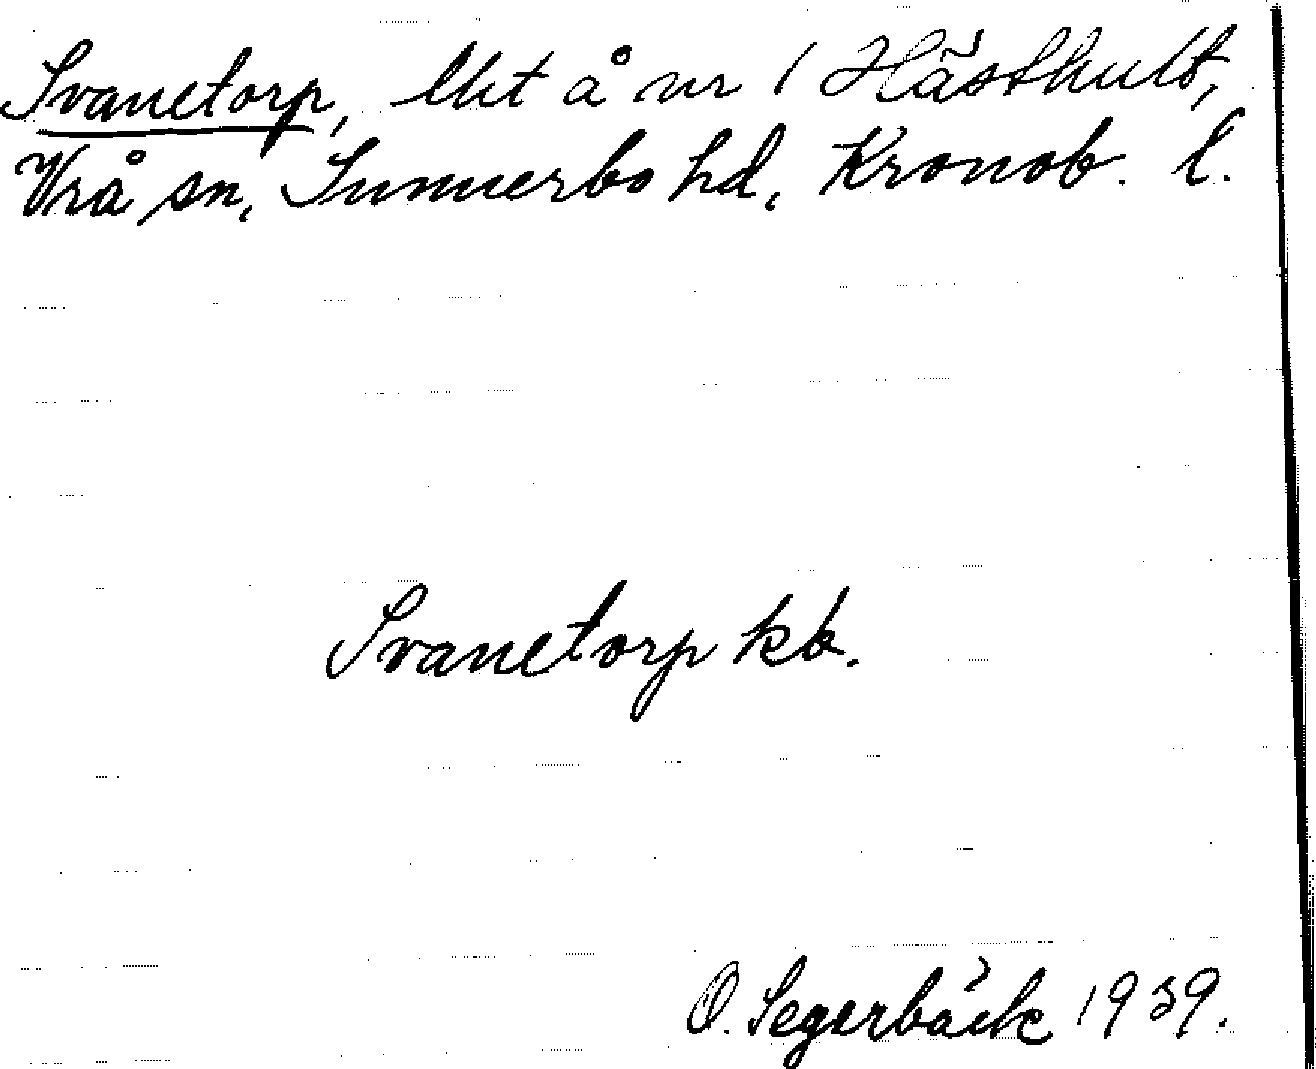 Svanetorp, lht å nr 1 Hästhult,
Vrå sn, Sunnerbo hd, Kronob. l.
Svanetorp kb.
O. Segerbäck 1939.